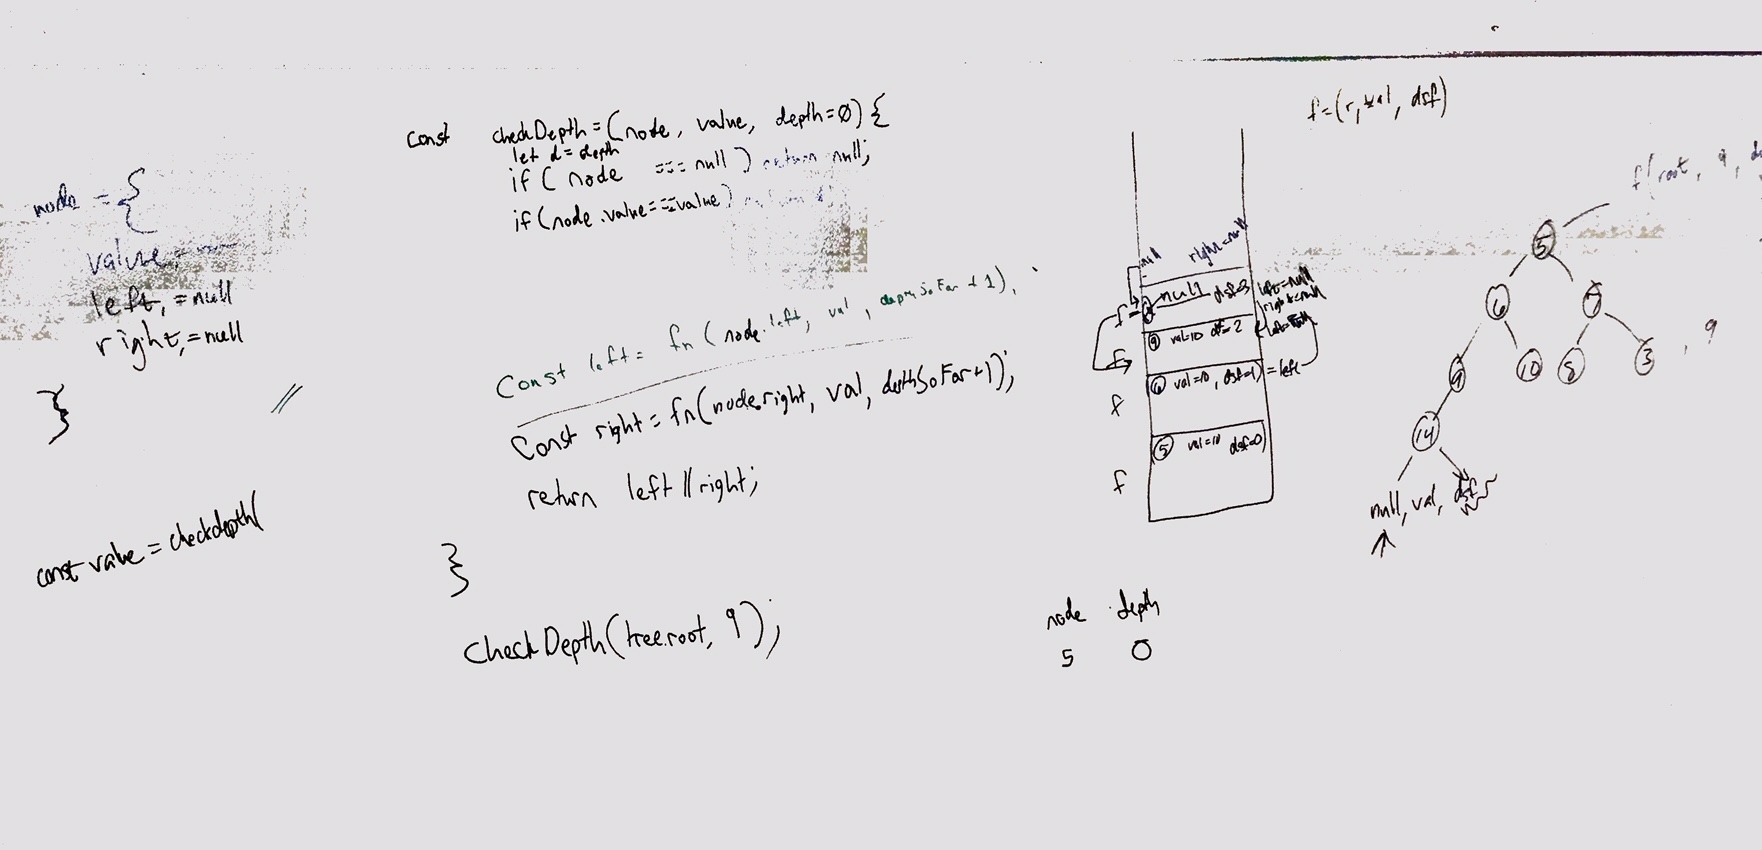 node = {
value: 
left: = null
right: = null
}
const value = checkdepth(
const checkDepth = (node, value, depth=0) {
let d = depth
if (node === null) return null;
if (node.value === value) return d;
const left = fn(node.left, val, depthSoFar + 1),
const right = fn(node.right, val, depthSoFar+1);
return left || right;
}
checkDepth(tree.root, 9);
f = (r, val, dsf)
null right=null
null dsf=3 left=null
right=null
f
9 val=10 dsf=2 left=null
f
6 val=10, dsf=1) = left
f
5 val=10 dsf=0)
f
node depth
5 0
f(root, 9,
5
6 7
9 10 8 3 , 9
14
null, val, dsf